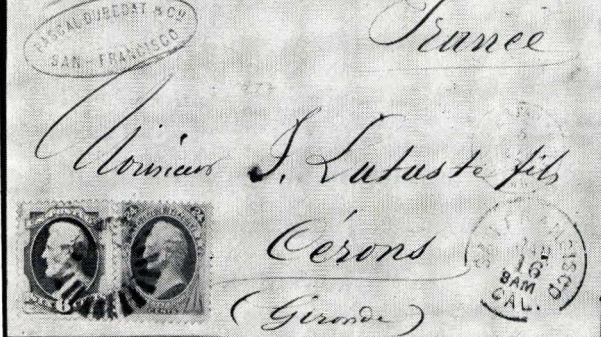 PASCAL DUBEDAT & Co
SAN-FRANCISCO
France
Monsieur J. Lataste fils
Cérons
(Gironde)
SAN FRANCISCO
16
8AM
CAL.